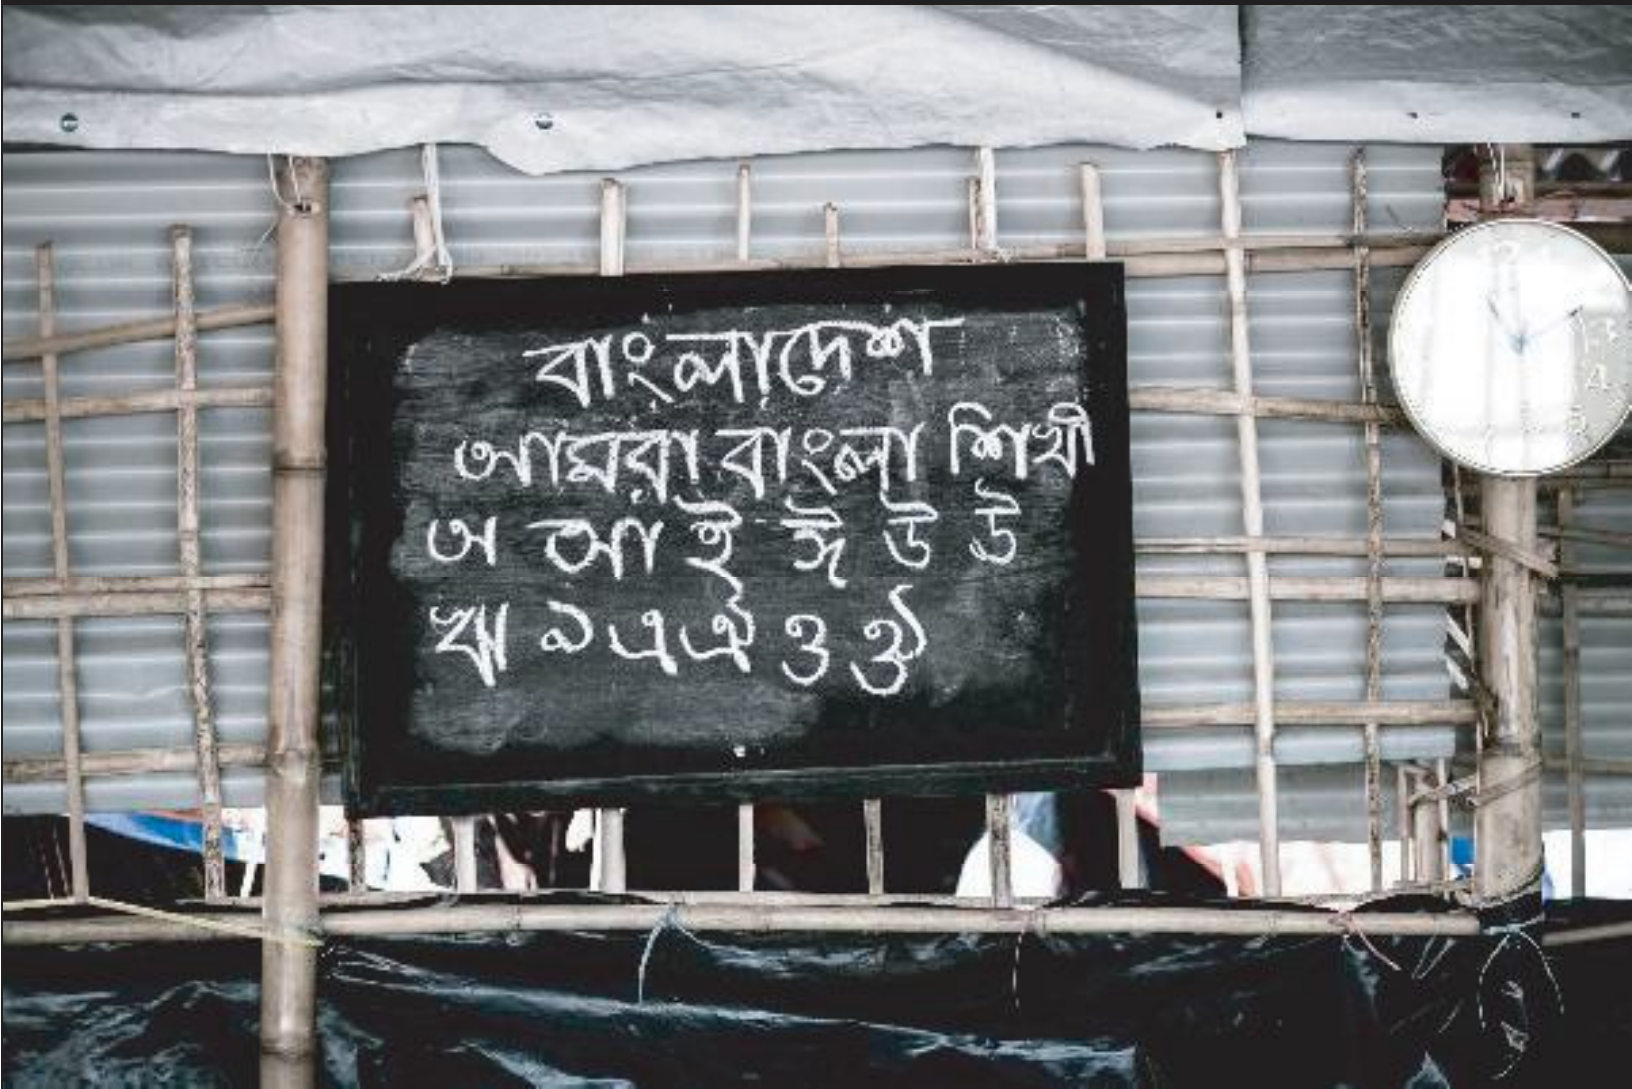 বাংলাদেশ
আমরা বাংলা শিখী
অ আ ই ঈ উ ঊ
ঋ ঌ এ ঐ ও ঔ
4